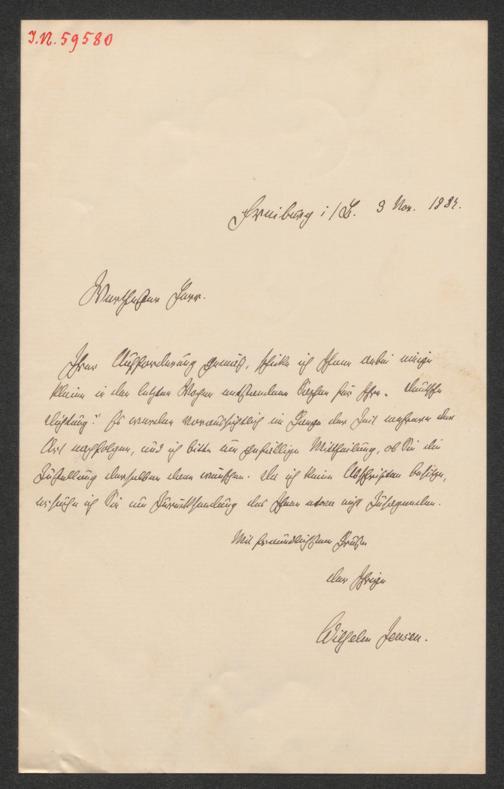 I.N. 59580
Freiburg i/B. 3 Nov. 1884.
Werthester Herr.
Ihrer Aufforderung gemäß, schicke ich Ihnen anbei einige
kleine in der letzten Woche entstandene Sachen für Ihre "Deutsche
Dichtung". Es werden voraussichtlich im Gange der Zeit mehrere der
Art nachfolgen, und ich bitte um gefällige Mittheilung, ob Sie die
Zustellung derselben dann wünschen. Da ich keine Abschriften besitze,
ersuche ich Sie um Zurücksendung des Ihnen etwa nicht Zusagenden.
Mit freundlichstem Gruße
der Ihrige
Wilhelm Jensen.